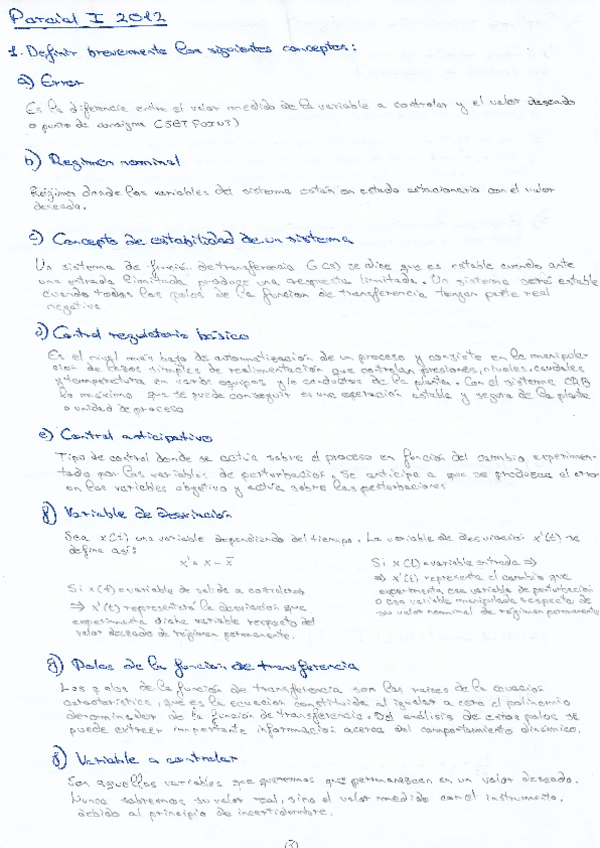 Parcial I 2012
1. Definir brevemente los siguientes conceptos:
a) Error
Es la diferencia entre el valor medido de la variable a controlar y el valor deseado
o punto de consigna (SET POINT)
b) Regimen nominal
Régimen donde las variables del sistema están en estado estacionario con el valor
deseado.
c) Concepto de estabilidad de un sistema
Un sistema de función de transferencia G(s) se dice que es estable cuando ante
una entrada limitada produce una respuesta limitada. Un sistema será estable
cuando todos los polos de la funcion de transferencia tengan parte real
negativa
d) Control regulatorio básico
Es el nivel más bajo de automatización de un proceso y consiste en la manipula-
ción de lazos simples de realimentación que controlan presiones, niveles, caudales
y temperatura en varios equipos y/o conductos de la planta. Con el sistema CRB
lo máximo que se puede conseguir es una operación estable y segura de la planta
o unidad de proceso
e) Control anticipativo
Tipo de control donde se actúa sobre el proceso en función del cambio experimen-
tado por las variables de perturbación. Se anticipa a que se produzca el error
en las variables objetivo y actúa sobre las perturbaciones
f) Variable de desviación
Sea x(t) una variable dependiendo del tiempo. La variable de desviación x'(t) se
define así:
x' = x - x̄
Si x(t) = variable de salida a controlar
⇒ x'(t) representa la desviación que
experimenta dicha variable respecto del
valor deseado de régimen permanente.
Si x(t) = variable entrada ⇒
⇒ x'(t) representa el cambio que
experimenta esa variable de perturbación
o esa variable manipulada respecto de
su valor nominal de régimen permanente
g) Polos de la funcion de transferencia
Los polos de la función de transferencia son las raíces de la ecuación
característica, que es la ecuación constituida al igualar a cero el polinomio
denominador de la función de transferencia. Del análisis de estos polos se
puede extraer importante información acerca del comportamiento dinámico.
g) Variable a controlar
Son aquellas variables que queremos que permanezcan en un valor deseado.
Nunca sabremos su valor real, sino el valor medido con el instrumento,
debido al principio de incertidumbre.